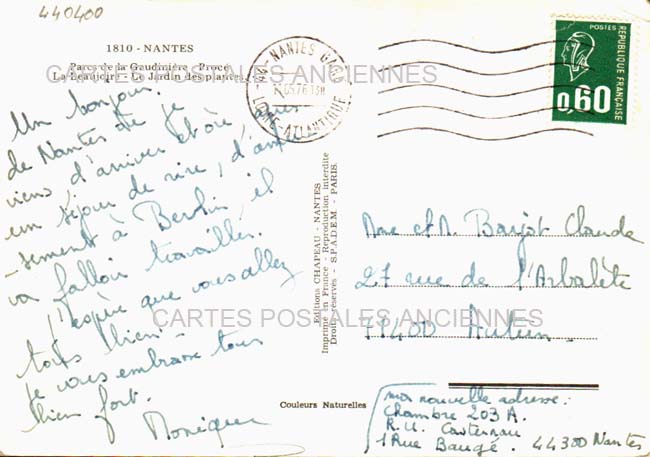 440400
1810 - NANTES
Parcs de la Gaudinière - Procé
La Beaujoire - Le Jardin des plantes
CARTES POSTALES ANCIENNES
44 - NANTES GARE
LOIRE-ATLANTIQUE
POSTES
REPUBLIQUE FRANÇAISE
0,60
Un bonjour
de Nantes où je
viens d'arriver et où après
un séjour de rire, d'amu
-sement à Berlin, il
va falloir travailler.
J'espère que vous allez
tous bien.
je vous embrasse tous
bien fort.
Monique
Editions CHAPEAU - NANTES
Imprimé en France - Reproduction interdite
Droits réservés - S.P.A.D.E.M. - PARIS.
Couleurs Naturelles
Mme et M. Barjot Claude
27 rue de l'Arbalète
71400 Autun
CARTES POSTALES ANCIENNES
ma nouvelle adresse:
Chambre 203 A.
R.U. Casternau
1 Rue Baugé. 44300 Nantes